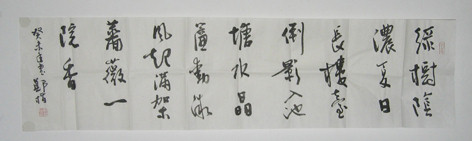 綠樹陰
濃夏日
長樓臺
倒影入池
塘水晶
簾動微
風起滿架
薔薇一
院香
癸未年書